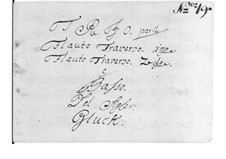 No: 49
T R I O. per il
Flauto Traverso. 1mo
Flauto Traverso. 2do
e
Basso.
Del Sigr.
Gluck.